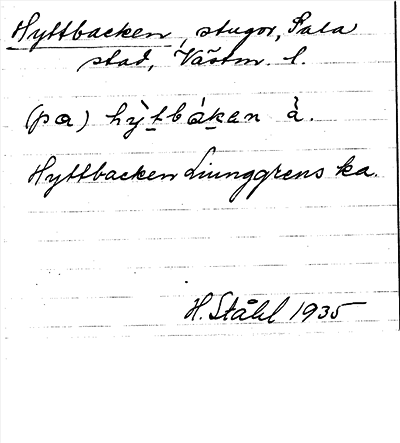 Hyttbacken, stugor, Sala
stad, Västm. l.
(pa) hỳt̲bák̲en à.
Hyttbacken Liunggrens ka.
H. Ståhl 1935